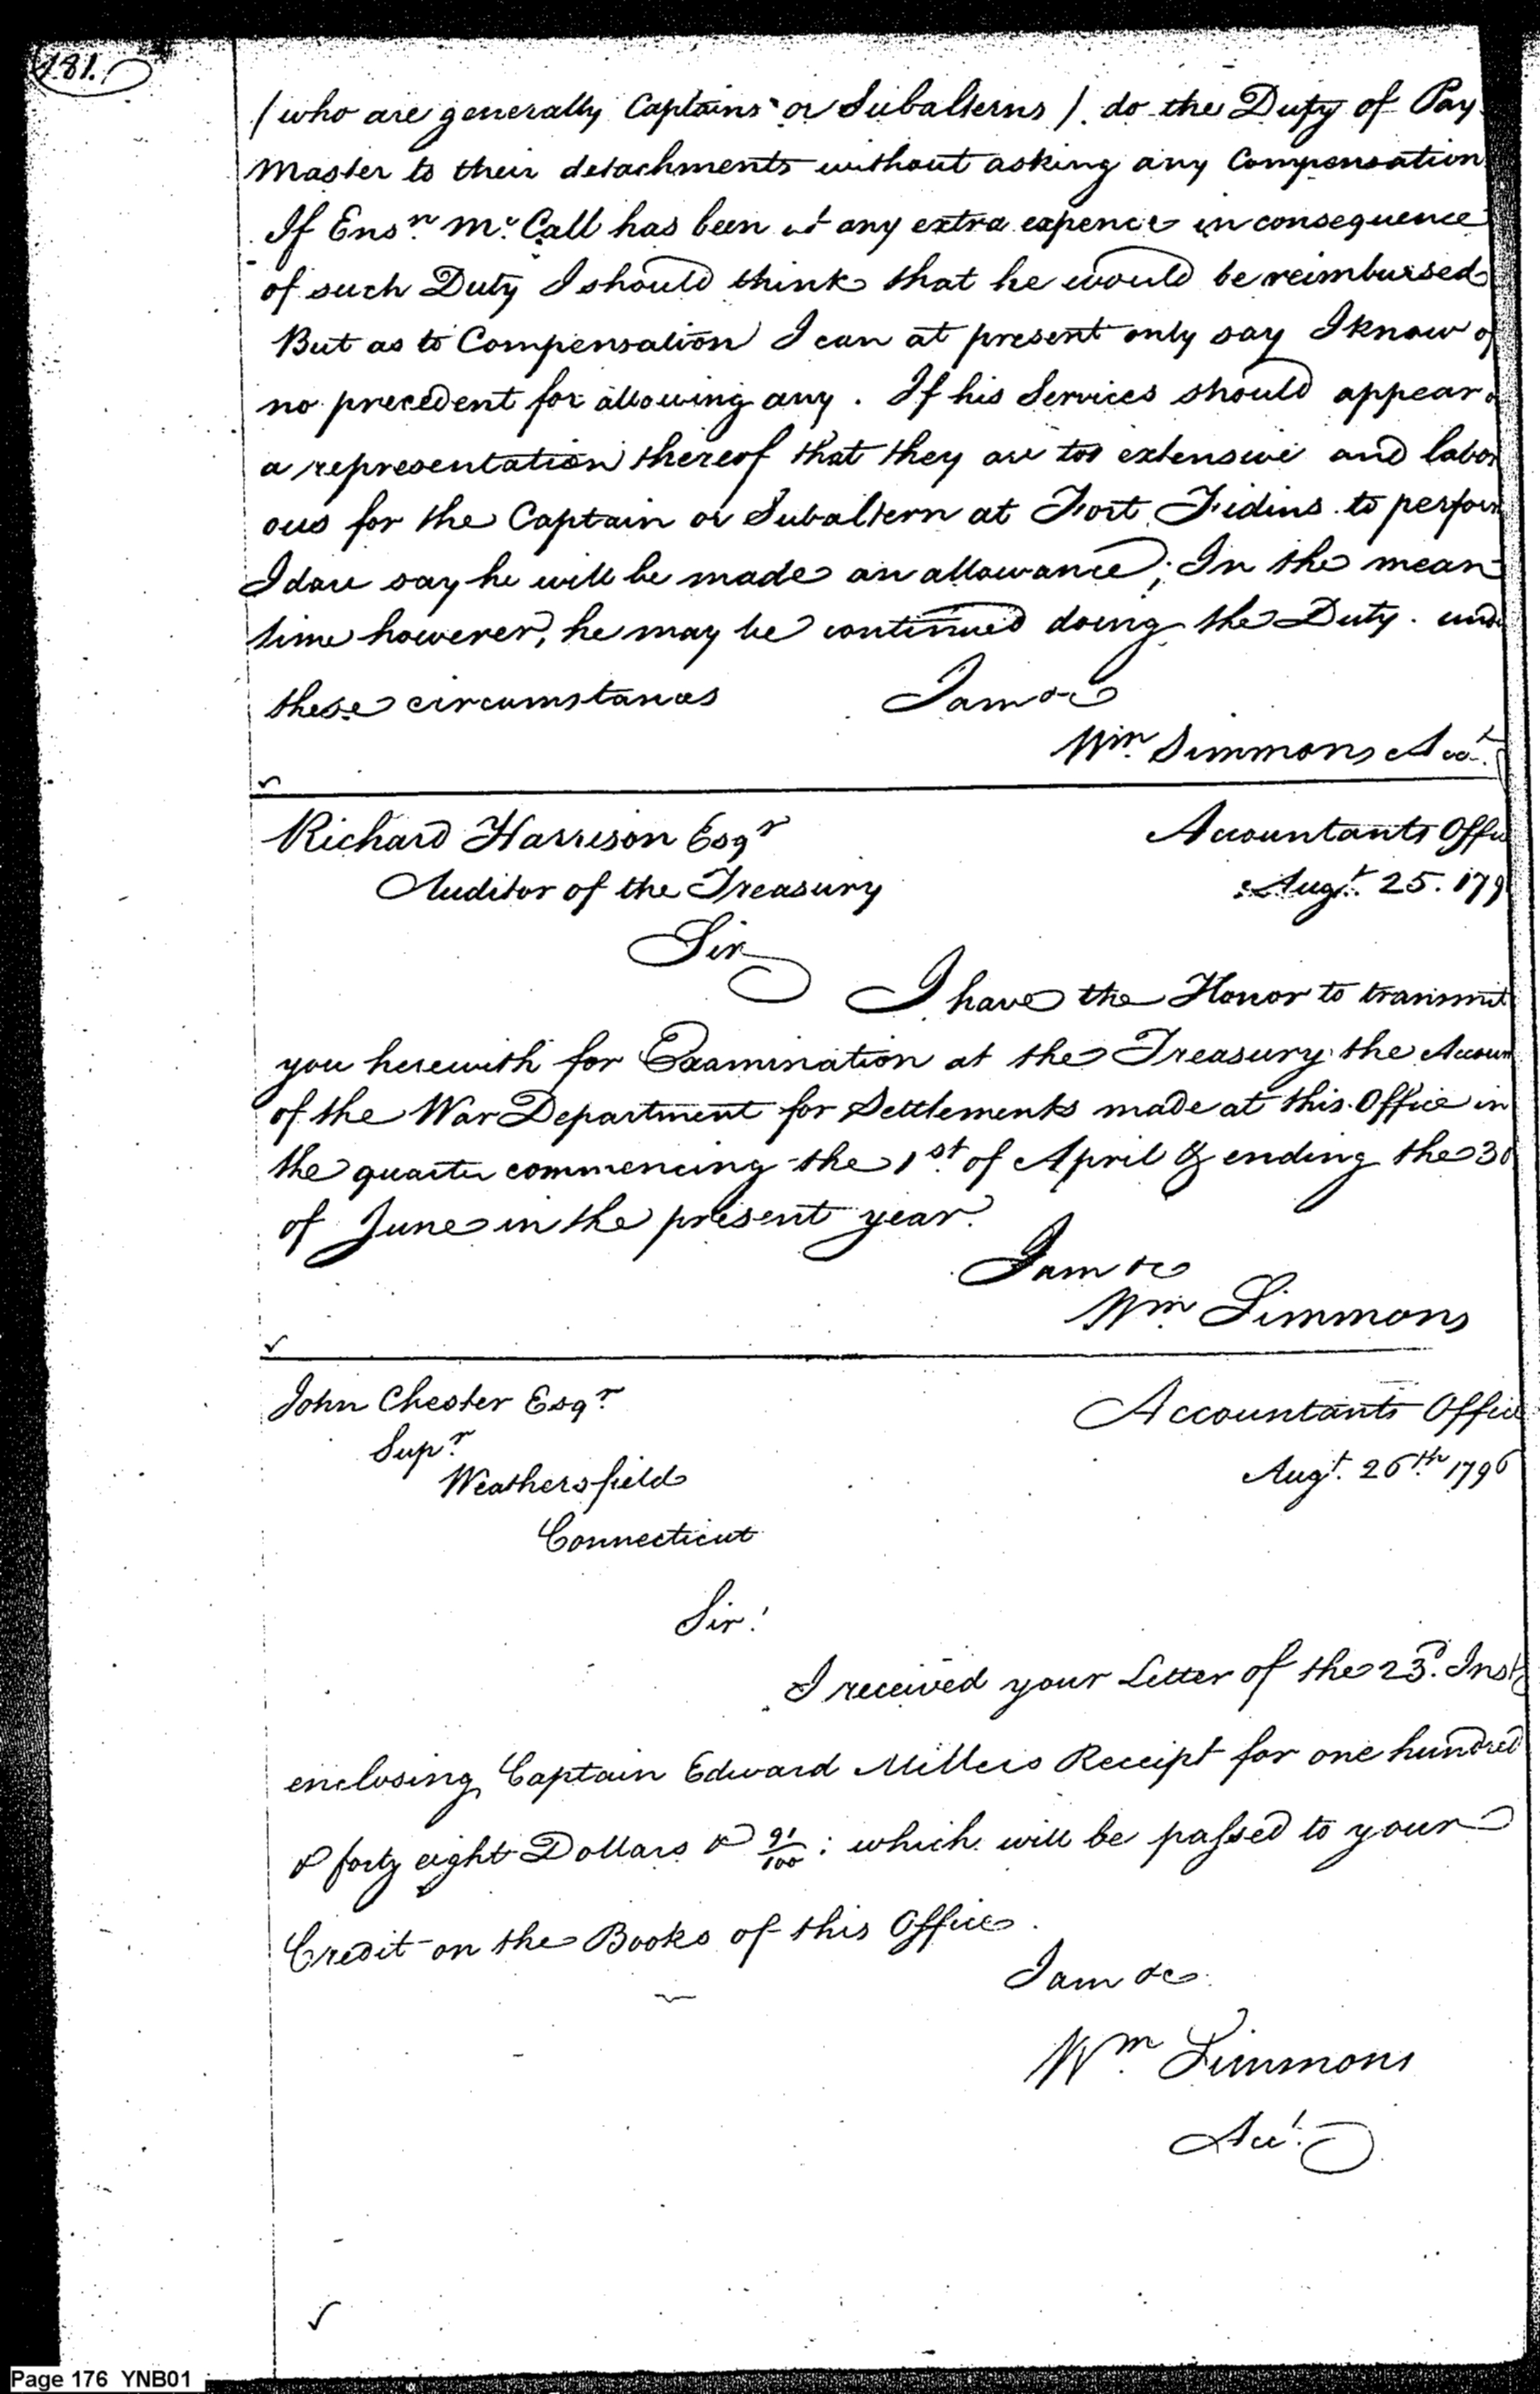 181.
(who are generally Captains or Subalterns) do the Duty of Pay
Master to their detachments without asking any Compensation
If Ensn. Mc.Call has been at any extra expence in consequence
of such Duty I should think that he would be reimbursed
But as to Compensation I can at present only say I know of
no precedent for allowing any. If his Services should appear
a representation thereof that they are too extensive and labor
ous for the Captain or Subaltern at Fort Fidius to perform
I dare say he will be made an allowance; In the mean
time however, he may be continued doing the Duty. und
these circumstances I am &c
Wm. Simmons Acct.
Richard Harrison Esqr
Accountants Offi
Auditor of the Treasury
Augt. 25. 179
Sir
I have the Honor to transmit
you herewith for Examination at the Treasury the Accoun
of the War Department for Settlements made at this Office in
the quarter commencing the 1st. of April & ending the 30
of June in the present year.
I am &c
Wm. Simmons
John Chester Esqr.
Accountants Offic
Supr.
Augt. 26th. 1796
Weathersfield
Connecticut
Sir!
I received your Letter of the 23d. Inst
enclosing Captain Edward Millers Receipt for one hundred
& forty eight Dollars & 91/100: which will be passed to your
Credit on the Books of this Office.
I am &c.
Wm. Simmons
Acct.
Page 176 YNB01